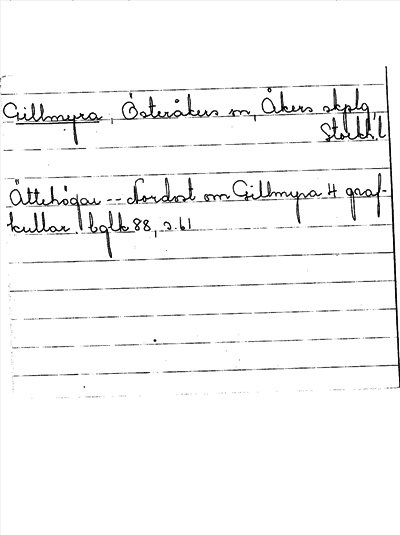 Gillmyra, Österåkers sn, Åkers skplg,
Stckh. l
Ättehögar -- Nordost om Gillmyra 4 graf-
kullar. bglk 88, s. 61